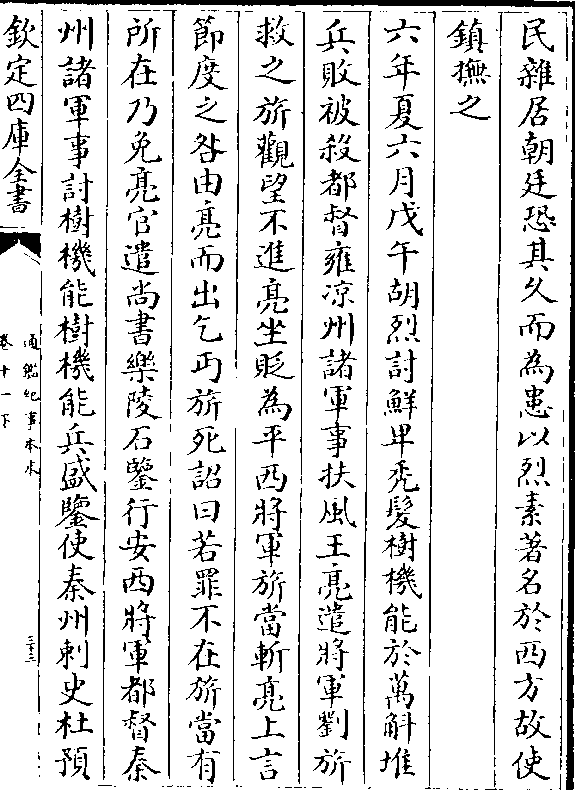 民雜居朝廷恐其久而為患以烈素著名於西方故使
鎮撫之
六年夏六月戊午胡烈討鮮卑秃髮樹機能於萬斛堆
兵敗被殺都督雍凉州諸軍事扶風王亮遣將軍劉旂
救之旂觀望不進亮坐貶為平西將軍旂當斬亮上言
節度之咎由亮而出乞丐旂死詔曰若罪不在旂當有
所在乃免亮官遣尚書樂陵石鑒行安西將軍都督秦
州諸軍事討樹機能樹機能兵盛鑒使秦州刺史杜預
欽定四庫全書
通鑑紀事本末
卷十一下
三十三